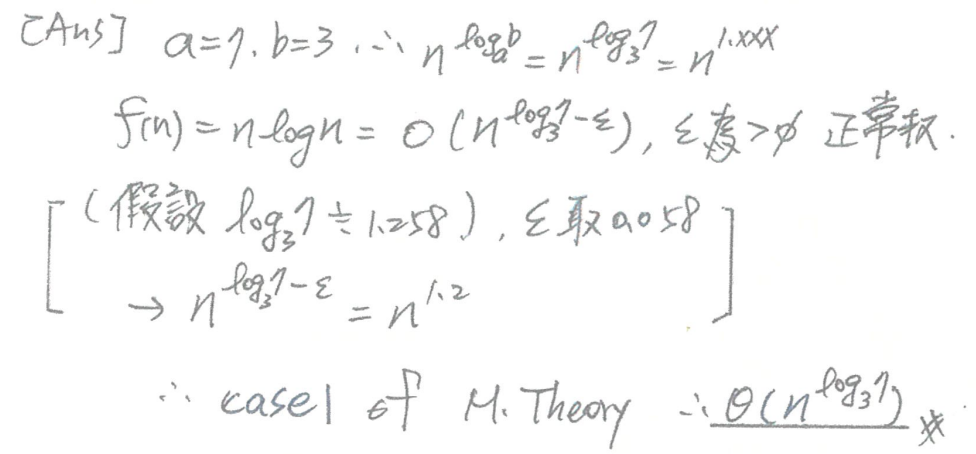 [Ans] a=7, b=3 ∴ n^{log_a b} = n^{log_3 7} = n^{1.xxx}
f(n) = n log n = O(n^{log_3 7-ε}), ε為>0 正常數.
(假設 log_3 7 ≒ 1.258), ε取0.058
→ n^{log_3 7-ε} = n^{1.2}
∴ case1 of M. Theory ∴ θ(n^{log_3 7}) #